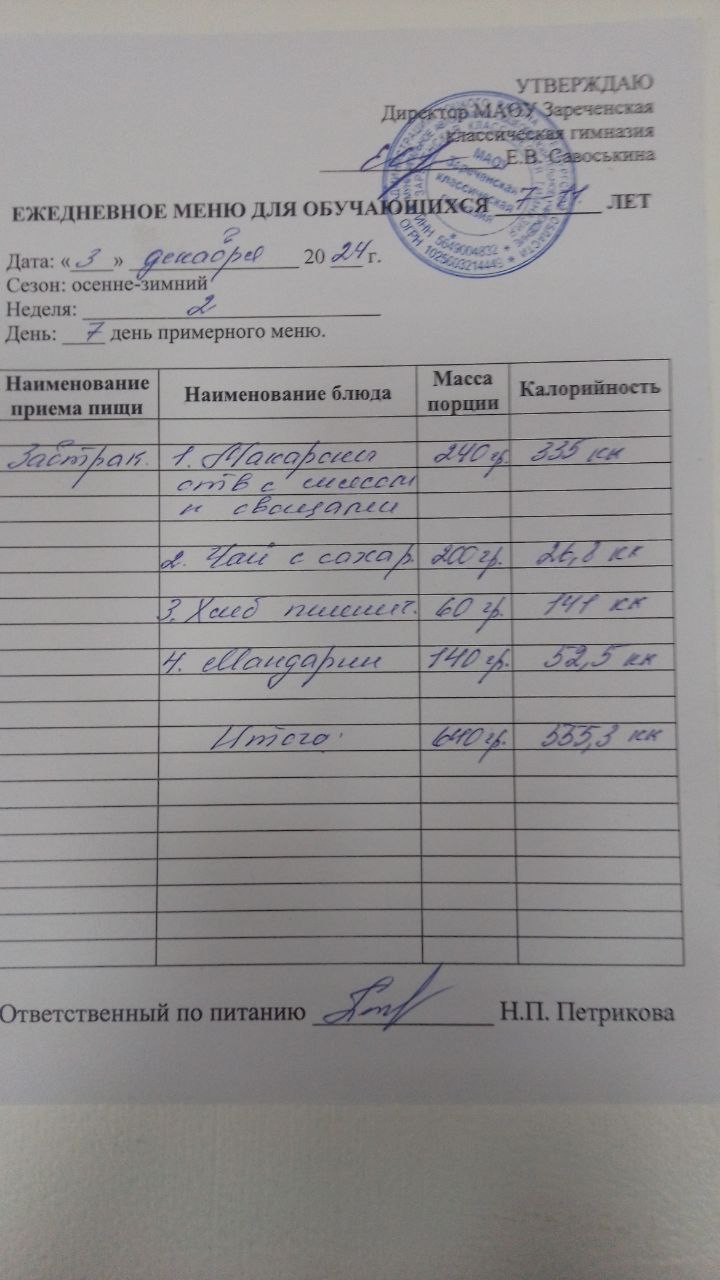 УТВЕРЖДАЮ
Директор МАОУ Зареченская
классическая гимназия
Е.В. Савоськина
МАОУ
Зареченская
классическая
ИНН 5649004832 * ОГРН 1025603214449 *
ЕЖЕДНЕВНОЕ МЕНЮ ДЛЯ ОБУЧАЮЩИХСЯ 7-11 ЛЕТ
Дата: «3» декабря 2024 г.
Сезон: осенне-зимний
Неделя: 2
День: 7 день примерного меню.
Наименование приема пищи Наименование блюда Масса порции Калорийность
Завтрак. 1. Макароны 240 гр. 335 кк
отв с мясом
и овощами
2. Чай с сахар. 200 гр. 26,8 кк
3. Хлеб пшенич. 60 гр. 141 кк
4. Мандарин 140 гр. 52,5 кк
Итого: 640 гр. 555,3 кк
Ответственный по питанию Н.П. Петрикова